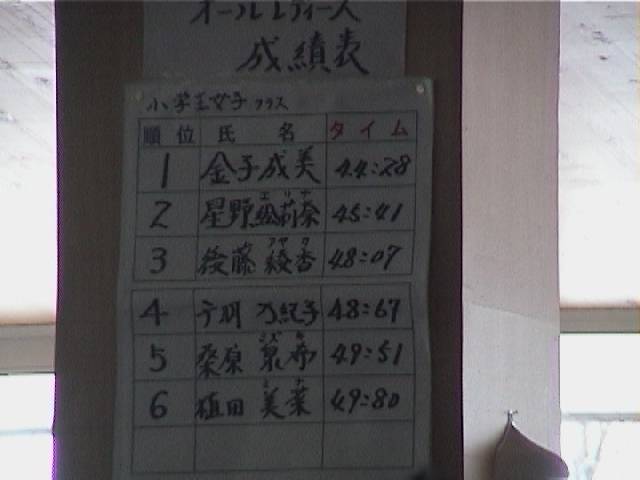 オールレディース
成績表
小学生女子クラス
順位 氏 名 タイム
1 金子成美 44:28
2 星野 莉奈 45:41
3 後藤 綾香 48:07
4 乃紀子 48:67
5 桑原 49:51
6 植田 美菜 49:80